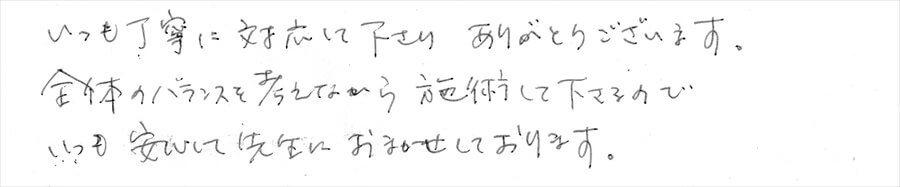 いつも丁寧に対応して下さり ありがとうございます。
全体のバランスを考えながら施術して下さるので
いつも安心して先生におまかせしております。